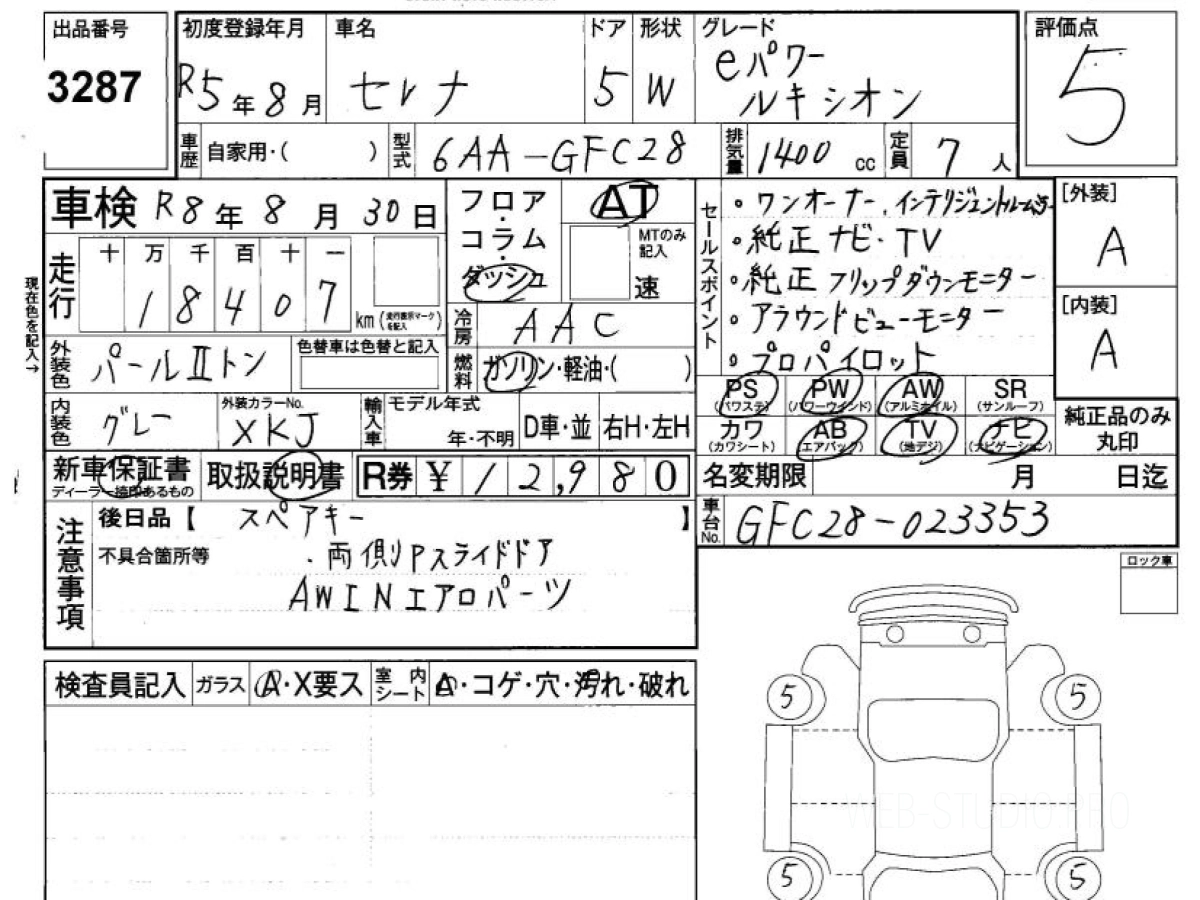 出品番号
3287
初度登録年月
R5年8月
車名
セレナ
ドア
5
形状
W
グレード
eパワー
ルキシオン
評価点
5
車歴
自家用・( )
型式
6AA-GFC28
排気量
1400 cc
定員
7人
車検 R8年8月30日
走行
十 万 千 百 十 一
1 8 4 0 7
km (走行表示マークを記入)
現在色を記入→
外装色
パールⅡトン
色替車は色替と記入
内装色
グレー
外装カラーNo.
XKJ
輸入車
モデル年式
年・不明
D車・並
右H・左H
フロア
・
コラム
・
ダッシュ
AT
MTのみ
記入
速
冷房
AAC
燃料
ガソリン・軽油・( )
セールスポイント
・ワンオーナー、インテリジェントルームミラー
・純正ナビ・TV
・純正フリップダウンモニター
・アラウンドビューモニター
・プロパイロット
[外装]
A
[内装]
A
PS
(パワステ)
PW
(パワーウインド)
AW
(アルミホイル)
SR
(サンルーフ)
カワ
(カワシート)
AB
(エアバック)
TV
(地デジ)
ナビ
(ナビゲーション)
純正品のみ
丸印
新車保証書
ディーラー捺印あるもの
取扱説明書
R券 ¥ 12,980
名変期限 月 日迄
車台No.
GFC28-023353
注意事項
後日品【 スペアキー 】
不具合箇所等
・両側Pスライドドア
AWINエアロパーツ
ロック車
検査員記入
ガラス
A・X要ス
室内シート
A・コゲ・穴・汚れ・破れ
5
5
WEB-STUDIO.PRO
5
5